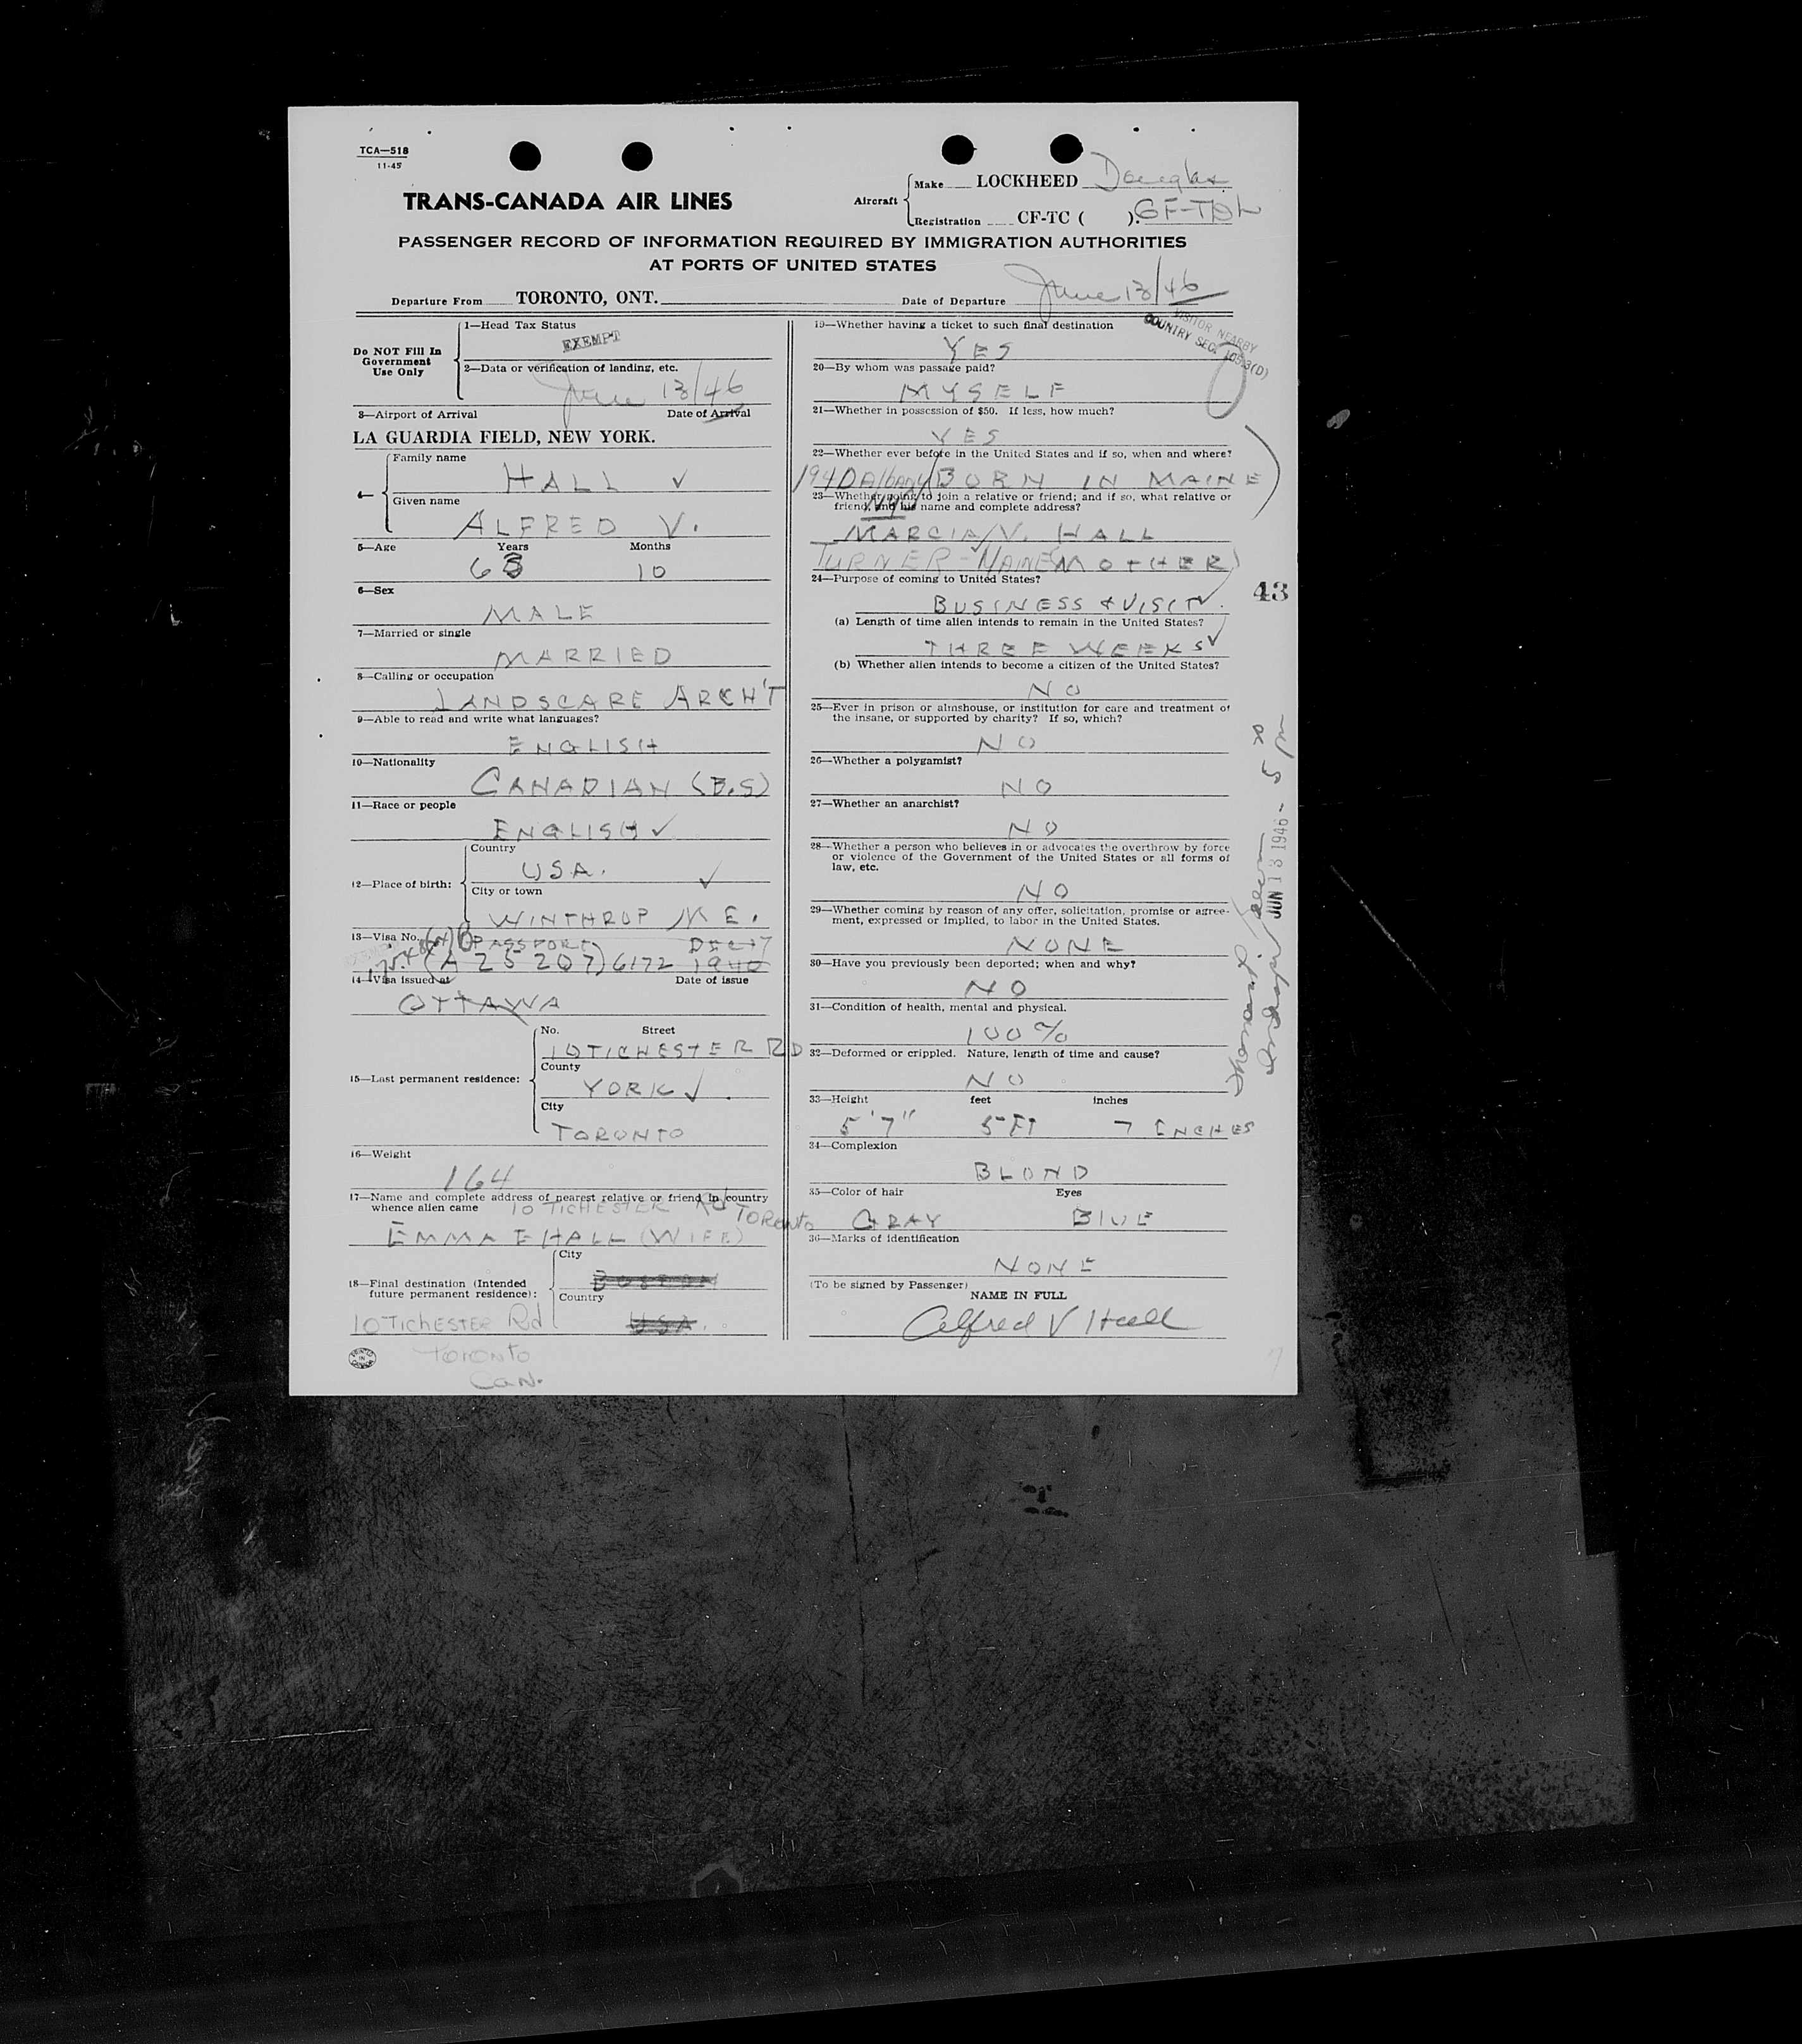 TCA—518
11-45
TRANS-CANADA AIR LINES
Aircraft
Make LOCKHEED Douglas
Registration CF-TC ( ). CF-TDL
PASSENGER RECORD OF INFORMATION REQUIRED BY IMMIGRATION AUTHORITIES
AT PORTS OF UNITED STATES
Departure From TORONTO, ONT.
Date of Departure June 13/46
Do NOT Fill In
Government
Use Only
1—Head Tax Status
EXEMPT
2—Data or verification of landing, etc.
June 13/46
3—Airport of Arrival Date of Arrival
LA GUARDIA FIELD, NEW YORK.
4—
Family name
HALL ✓
Given name
ALFRED V.
5—Age Years Months
63 10
6—Sex
MALE
7—Married or single
MARRIED
8—Calling or occupation
LANDSCAPE ARCH'T
9—Able to read and write what languages?
ENGLISH
10—Nationality
CANADIAN (B.S)
11—Race or people
ENGLISH ✓
12—Place of birth:
Country
USA. ✓
City or town
WINTHROP ME.
13—Visa No.
PASSPORT DEC 17
(A 25 207) 6172 1940
14—Visa issued at Date of issue
OTTAWA
15—Last permanent residence:
No. Street
10 TICHESTER RD
County
YORK ✓
City
TORONTO
16—Weight
164
17—Name and complete address of nearest relative or friend in country
whence alien came 10 TICHESTER Rd
TORONTO
EMMA E HALL (WIFE)
18—Final destination (Intended
future permanent residence):
City
BOSTON
Country
USA.
10 TICHESTER Rd
TORONTO
CAN.
PRINTED IN CANADA
VISITOR NEARBY
COUNTRY SEC.
19—Whether having a ticket to such final destination
YES
20—By whom was passage paid?
MYSELF
21—Whether in possession of $50. If less, how much?
YES
22—Whether ever before in the United States and if so, when and where?
1940 Albany NY BORN IN MAINE
23—Whether going to join a relative or friend; and if so, what relative or
friend, and his name and complete address?
MARCIA V. HALL
TURNER - MAINE (MOTHER)
24—Purpose of coming to United States?
BUSINESS & VISIT ✓
43
(a) Length of time alien intends to remain in the United States?
THREE WEEKS ✓
(b) Whether alien intends to become a citizen of the United States?
NO
25—Ever in prison or almshouse, or institution for care and treatment of
the insane, or supported by charity? If so, which?
NO
26—Whether a polygamist?
NO
27—Whether an anarchist?
NO
28—Whether a person who believes in or advocates the overthrow by force
or violence of the Government of the United States or all forms of
law, etc.
NO
29—Whether coming by reason of any offer, solicitation, promise or agree-
ment, expressed or implied, to labor in the United States.
NONE
30—Have you previously been deported; when and why?
NO
31—Condition of health, mental and physical.
100%
32—Deformed or crippled. Nature, length of time and cause?
NO
33—Height feet inches
5'7" 5 FT 7 INCHES
34—Complexion
BLOND
35—Color of hair Eyes
GRAY BLUE
36—Marks of identification
NONE
(To be signed by Passenger)
NAME IN FULL
Alfred V Hall
JUN 13 1946